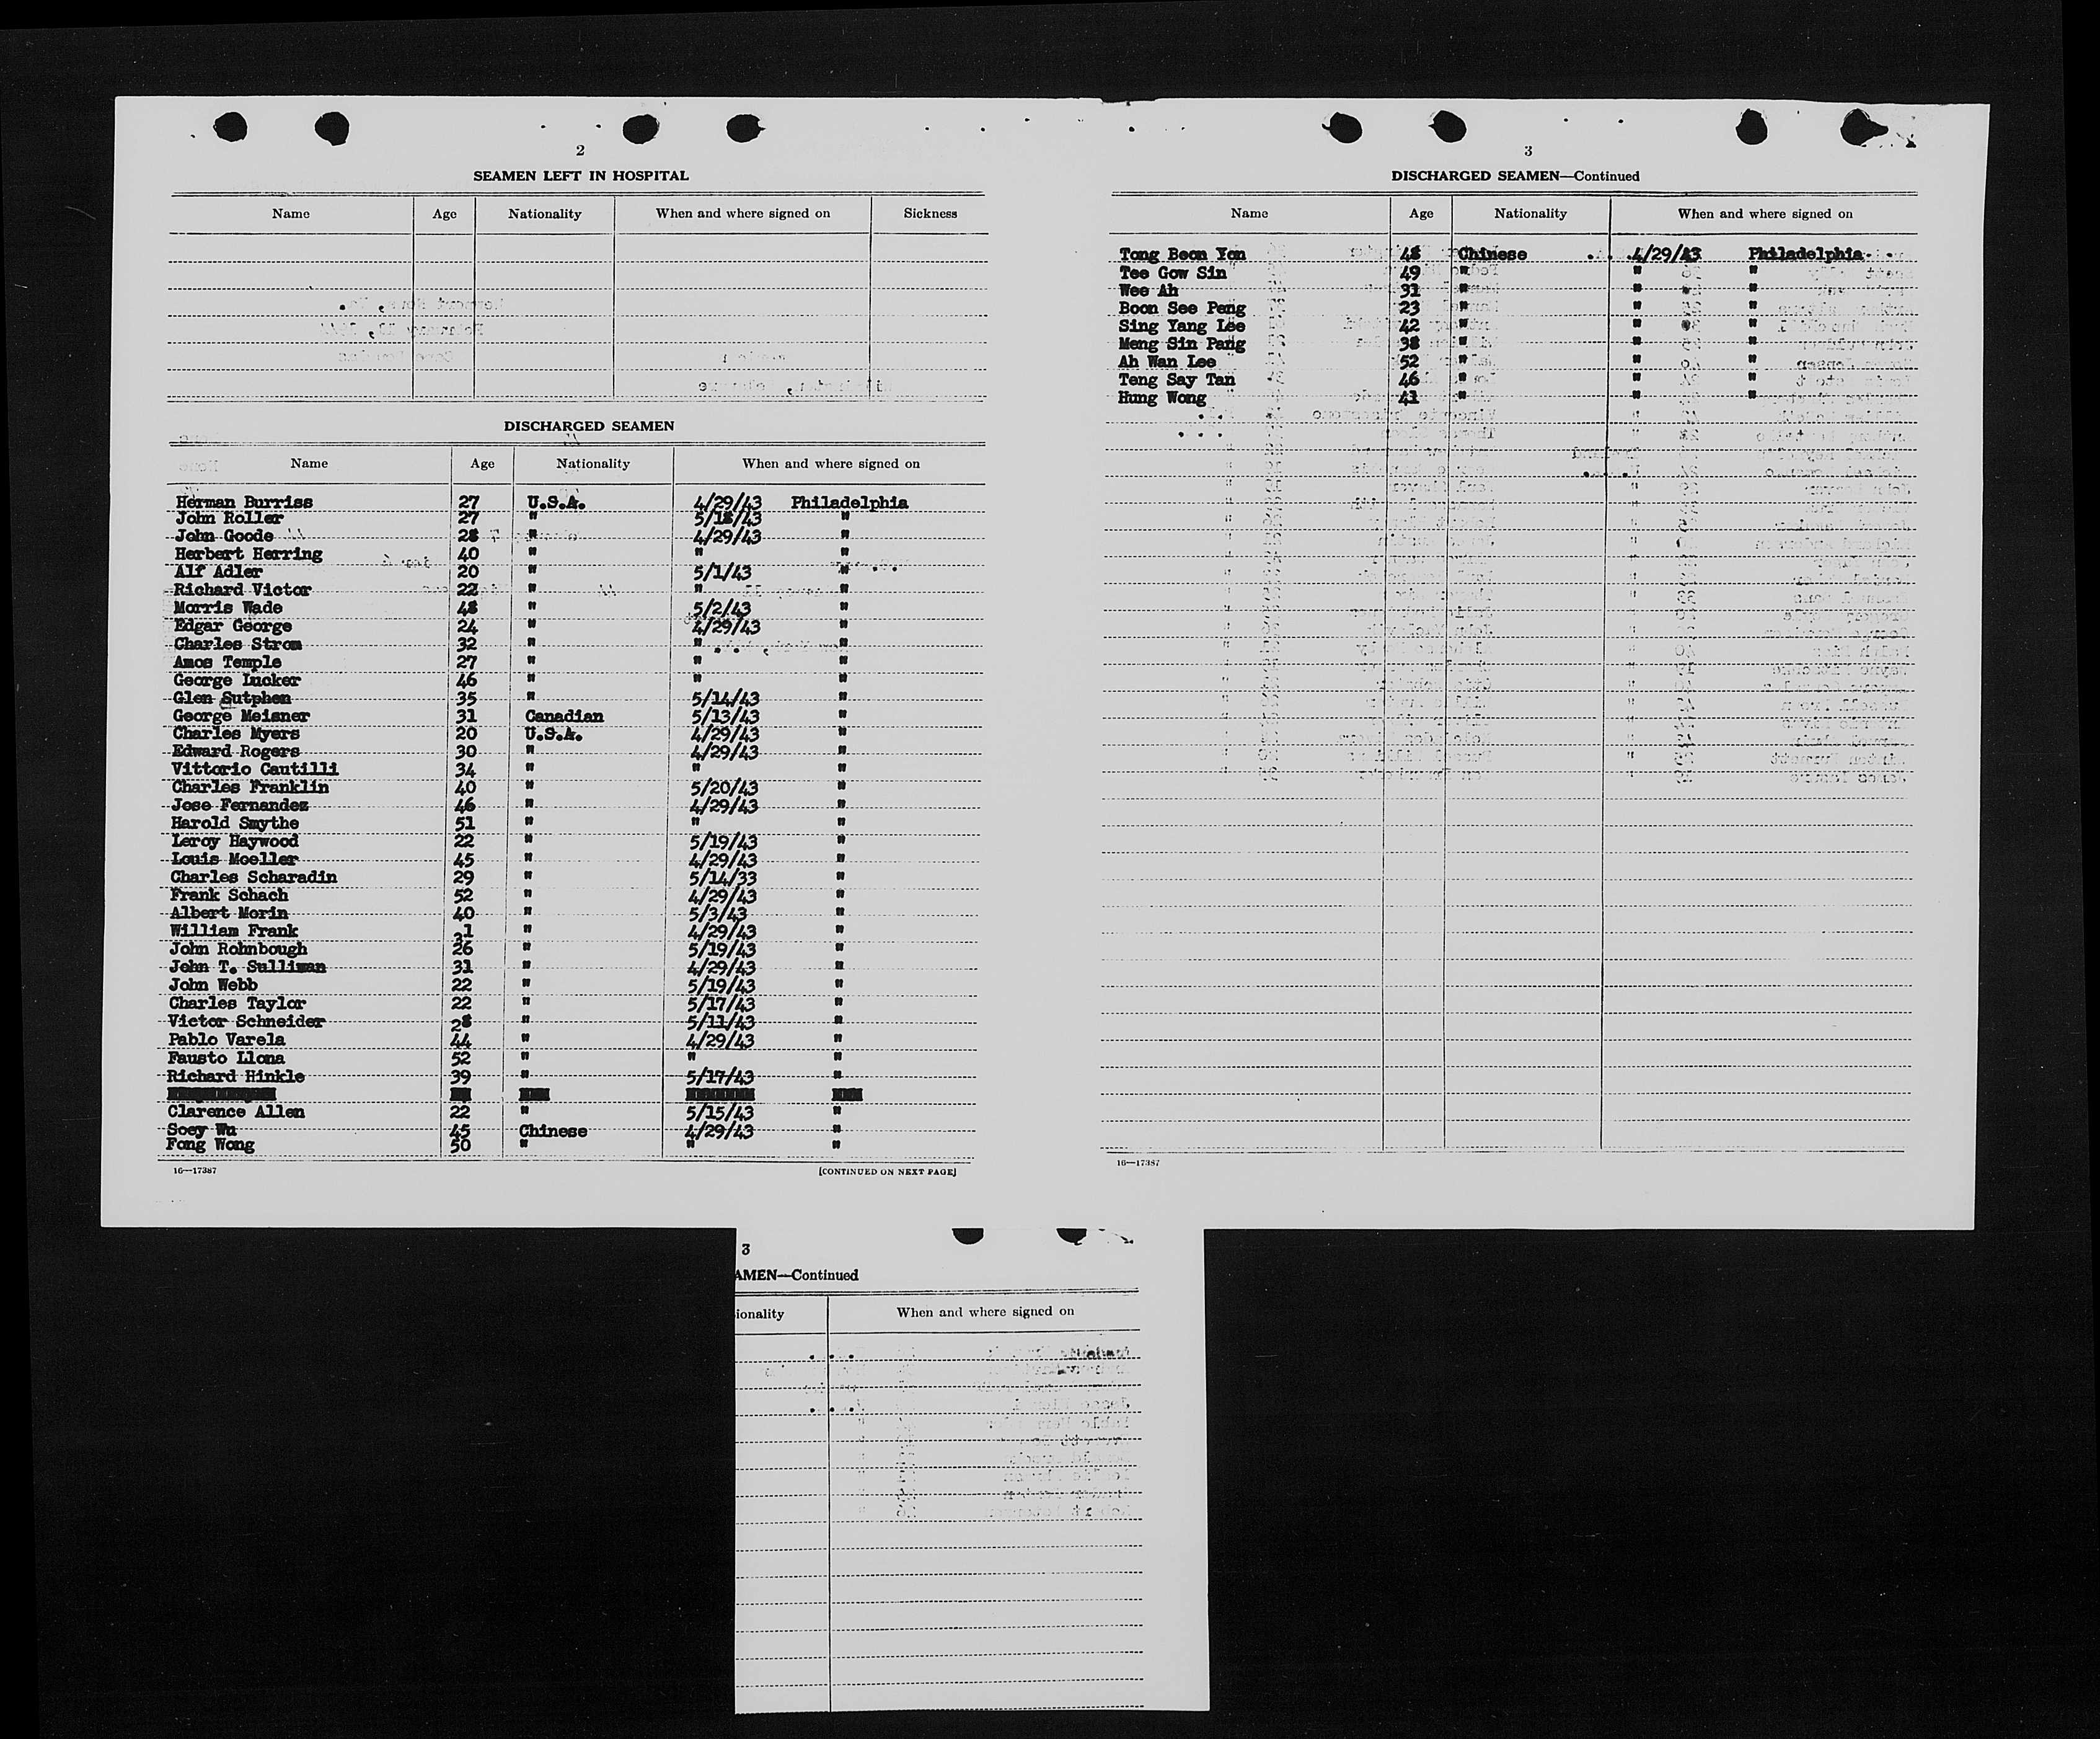 2
SEAMEN LEFT IN HOSPITAL
Name Age Nationality When and where signed on Sickness
DISCHARGED SEAMEN
Name Age Nationality When and where signed on
Herman Burriss 27 U.S.A. 4/29/43 Philadelphia
John Roller 27 " 5/18/43 "
John Goode 28 " 4/29/43 "
Herbert Herring 40 " " "
Alf Adler 20 " 5/1/43 "
Richard Victor 22 " " "
Morris Wade 48 " 5/2/43 "
Edgar George 24 " 4/29/43 "
Charles Strom 32 " " "
Amos Temple 27 " " "
George Lucker 46 " " "
Glen Sutphen 35 " 5/14/43 "
George Meisner 31 Canadian 5/13/43 "
Charles Myers 20 U.S.A. 4/29/43 "
Edward Rogers 30 " 4/29/43 "
Vittorio Cautilli 34 " " "
Charles Franklin 40 " 5/20/43 "
Jose Fernandez 46 " 4/29/43 "
Harold Smythe 51 " " "
Leroy Haywood 22 " 5/19/43 "
Louis Moeller 45 " 4/29/43 "
Charles Scharadin 29 " 5/14/33 "
Frank Schach 52 " 4/29/43 "
Albert Morin 40 " 5/3/43 "
William Frank 31 " 4/29/43 "
John Rohnbough 26 " 5/19/43 "
John T. Sullivan 31 " 4/29/43 "
John Webb 22 " 5/19/43 "
Charles Taylor 22 " 5/17/43 "
Victor Schneider 28 " 5/11/43 "
Pablo Varela 44 " 4/29/43 "
Fausto Llona 52 " " "
Richard Hinkle 39 " 5/17/43 "
Clarence Allen 22 " 5/15/43 "
Soey Wu 45 Chinese 4/29/43 "
Fong Wong 50 " " "
16—17387 [CONTINUED ON NEXT PAGE]
3
DISCHARGED SEAMEN—Continued
Name Age Nationality When and where signed on
Tong Boon Yon 48 Chinese 4/29/43 Philadelphia
Tee Gow Sin 49 " " "
Wee Ah 31 " " "
Boon See Peng 23 " " "
Sing Yang Lee 42 " " "
Meng Sin Pang 38 " " "
Ah Wan Lee 52 " " "
Teng Say Tan 46 " " "
Hung Wong 41 " " "
16—17387
3
AMEN—Continued
ionality When and where signed on